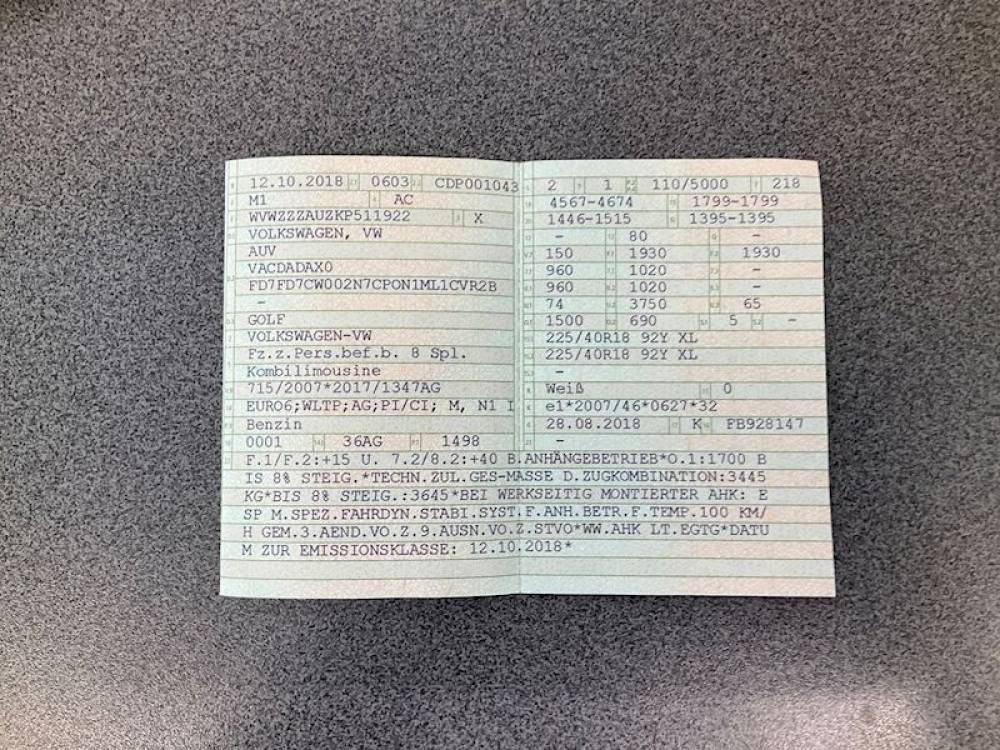 12.10.2018 0603 CDP001043
M1 AC
WVWZZZAUZKP511922 X
VOLKSWAGEN, VW
AUV
VACDADAX0
FD7FD7CW002N7CPON1ML1CVR2B
-
GOLF
VOLKSWAGEN-VW
Fz.z.Pers.bef.b. 8 Spl.
Kombilimousine
715/2007*2017/1347AG
EURO6;WLTP;AG;PI/CI; M, N1 I
Benzin
0001 36AG 1498
2 1 110/5000 218
4567-4674 1799-1799
1446-1515 1395-1395
- 80 -
150 1930 1930
960 1020 -
960 1020 -
74 3750 65
1500 690 5 -
225/40R18 92Y XL
225/40R18 92Y XL
-
Weiß 0
e1*2007/46*0627*32
28.08.2018 K FB928147
-
F.1/F.2:+15 U. 7.2/8.2:+40 B.ANHÄNGEBETRIEB*O.1:1700 B
IS 8% STEIG.*TECHN.ZUL.GES-MASSE D.ZUGKOMBINATION:3445
KG*BIS 8% STEIG.:3645*BEI WERKSEITIG MONTIERTER AHK: E
SP M.SPEZ.FAHRDYN.STABI.SYST.F.ANH.BETR.F.TEMP.100 KM/
H GEM.3.AEND.VO.Z.9.AUSN.VO.Z.STVO*WW.AHK LT.EGTG*DATU
M ZUR EMISSIONSKLASSE: 12.10.2018*